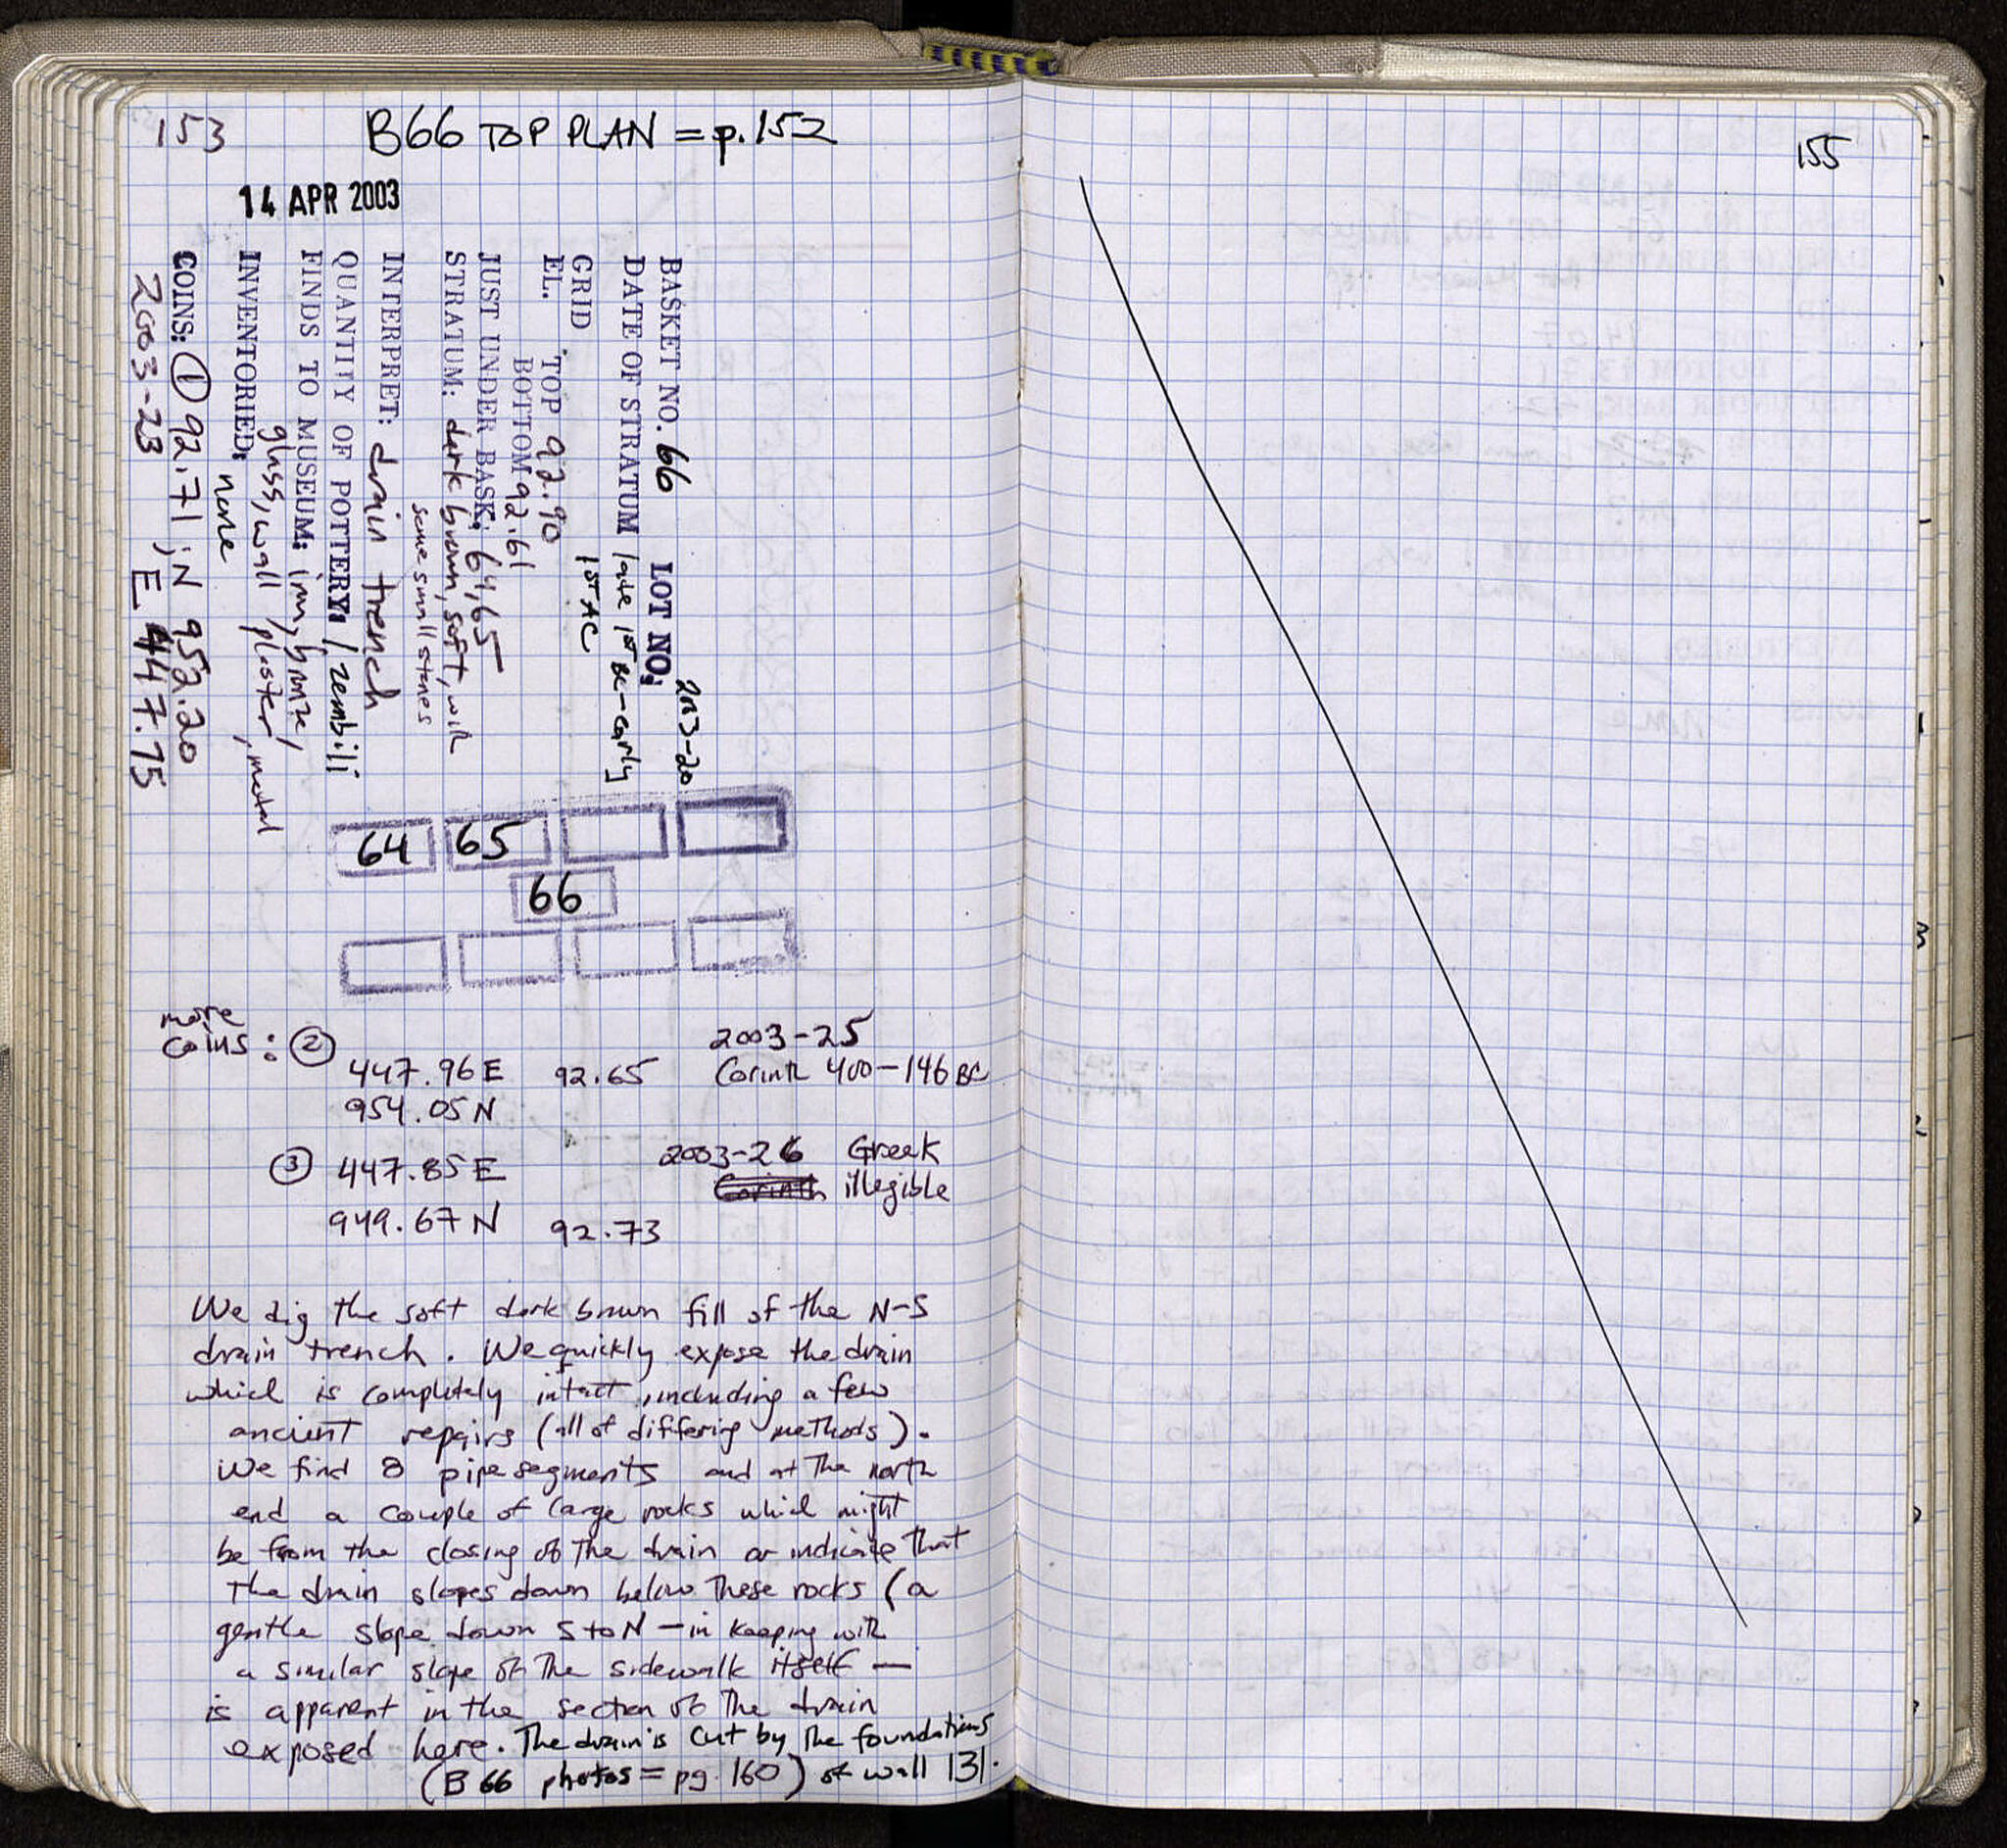 153
B66 TOP PLAN = p.152
14 APR 2003
BASKET NO. 66 LOT NO. 2003-20
DATE OF STRATUM late 1st BC-early
1st AC
GRID
EL. TOP 92.90
BOTTOM 92.61
JUST UNDER BASK. 64,65
STRATUM: dark brown, soft, with
some small stones
INTERPRET: drain trench
QUANTITY OF POTTERY: 1 zembili
FINDS TO MUSEUM: iron, bronze,
glass, wall plaster, metal
INVENTORIED: none
COINS: ① 92.71 ; N 952.20
2003-23 E 447.75
64 65
66
more
coins: ②
2003-25
447.96 E 92.65 Corinth 400-146 BC
954.05 N
③ 447.85 E 2003-26 Greek
Corinth illegible
949.67 N 92.73
We dig the soft dark brown fill of the N-S
drain trench. We quickly expose the drain
which is completely intact, including a few
ancient repairs (all of differing methods).
We find 8 pipe segments and at the north
end a couple of large rocks which might
be from the closing of the drain or indicate that
the drain slopes down below these rocks (a
gentle slope down S to N — in keeping with
a similar slope of the sidewalk itself —
is apparent in the section of the drain
exposed here. The drain is cut by the foundations
(B 66 photos = pg. 160) of wall 131.
155